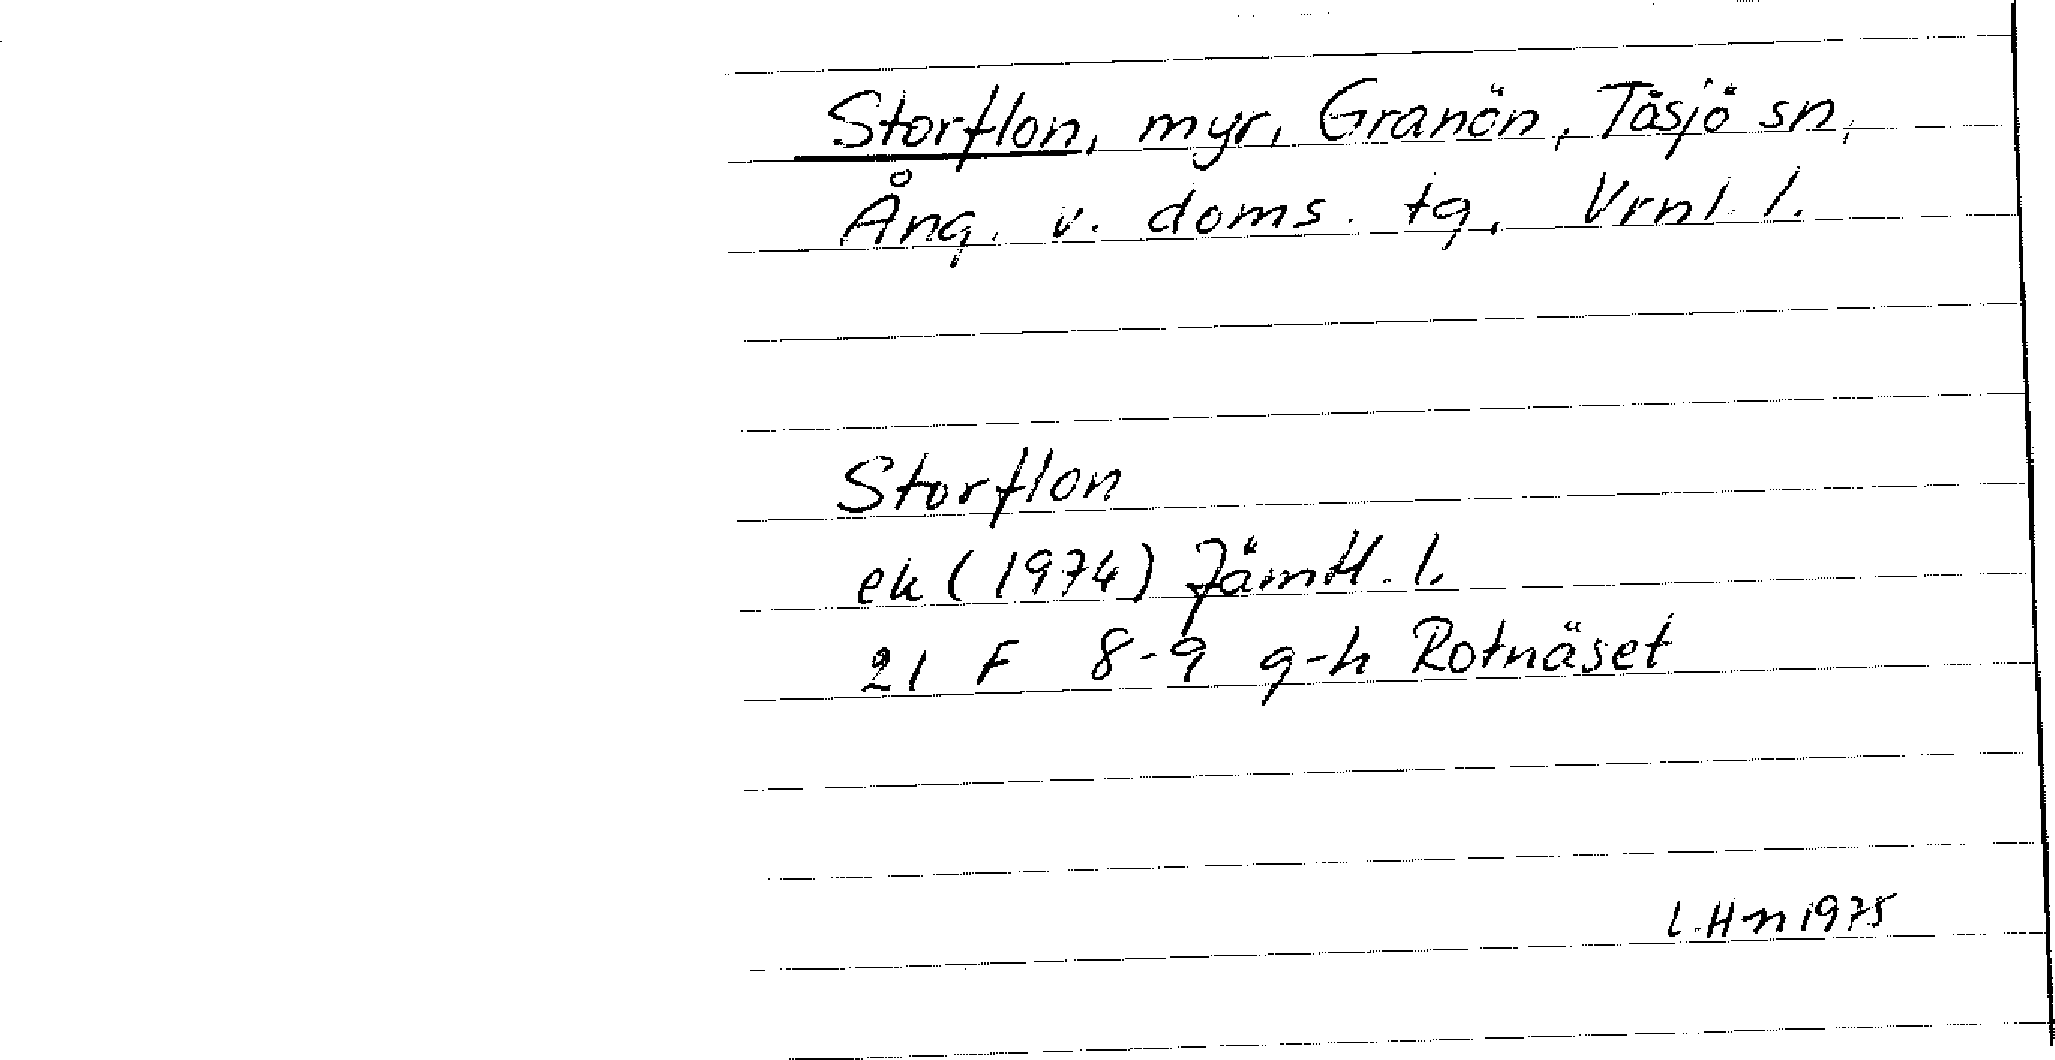 Storflon, myr, Granön, Tåsjö sn,
Ång. v. doms. tg, Vrnl l.
Storflon
ek (1974) Jämtl. l.
21 F 8-9 g-h Rotnäset
L.Hn 1975